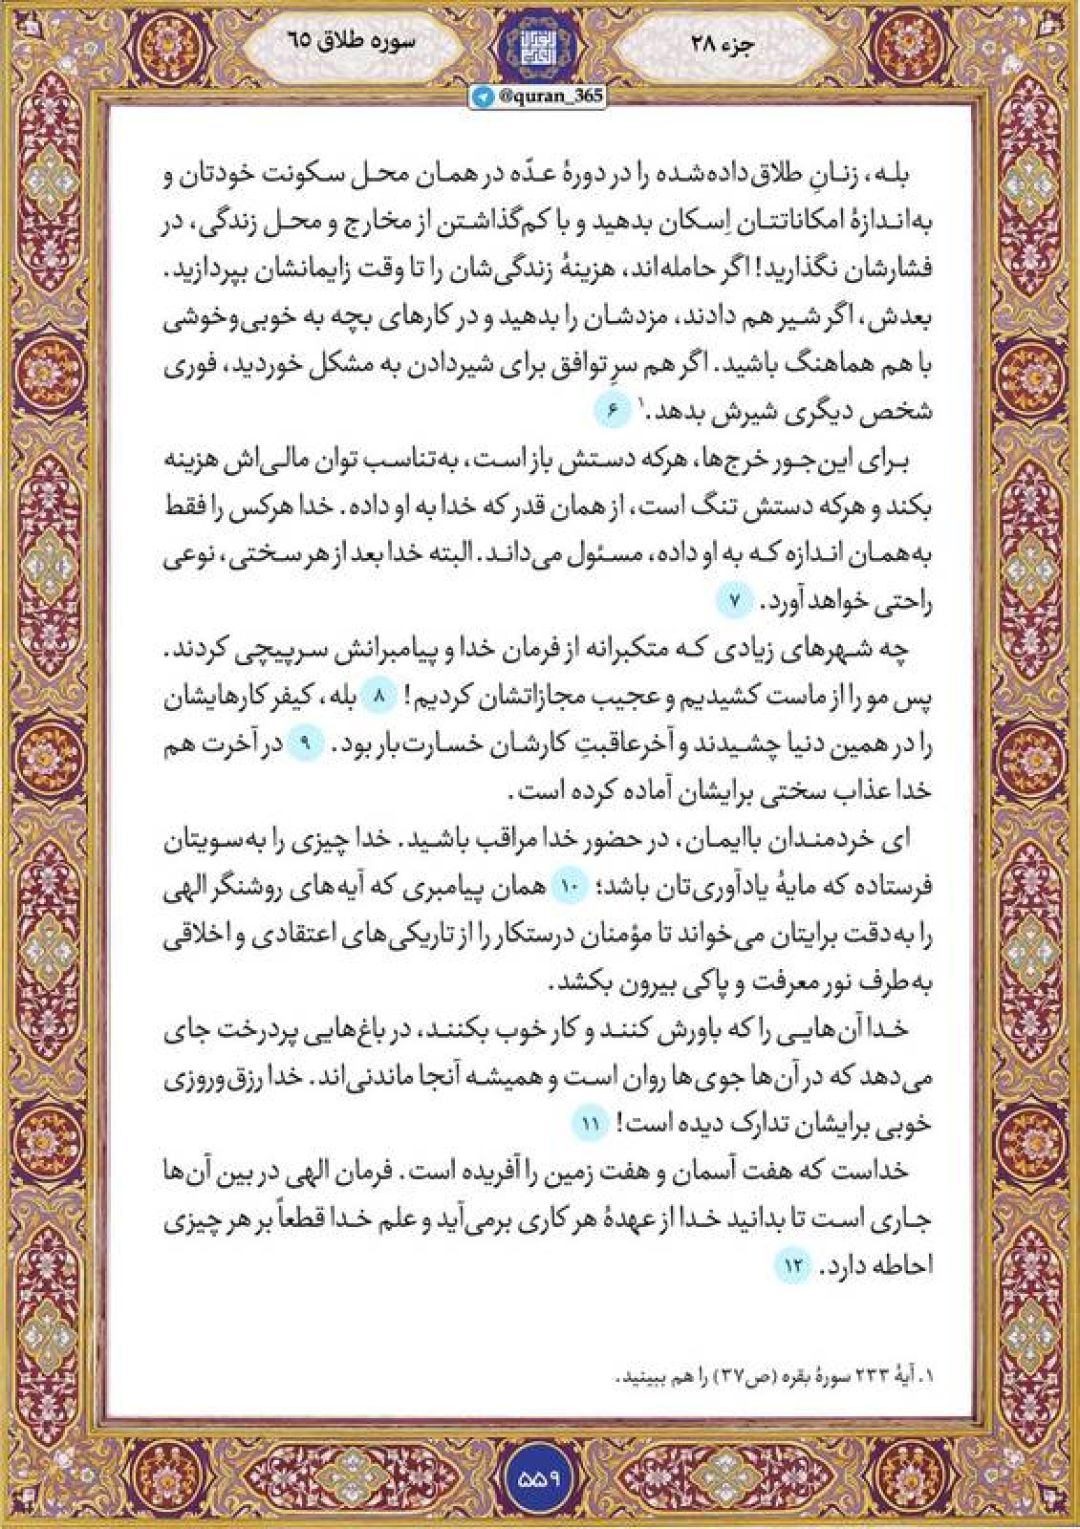 جزء ۲۸
سوره طلاق ۶۵
@quran_365
بله، زنانِ طلاق‌داده‌شده را در دورهٔ عدّه در همان محل سکونت خودتان و
به‌اندازهٔ امکاناتتان اِسکان بدهید و با کم‌گذاشتن از مخارج و محل زندگی، در
فشارشان نگذارید! اگر حامله‌اند، هزینهٔ زندگی‌شان را تا وقت زایمانشان بپردازید.
بعدش، اگر شیر هم دادند، مزدشان را بدهید و در کارهای بچه به خوبی‌وخوشی
با هم هماهنگ باشید. اگر هم سرِ توافق برای شیردادن به مشکل خوردید، فوری
شخص دیگری شیرش بدهد.۱ ۶
برای این‌جور خرج‌ها، هرکه دستش باز است، به‌تناسب توان مالی‌اش هزینه
بکند و هرکه دستش تنگ است، از همان قدر که خدا به او داده. خدا هرکس را فقط
به‌همان اندازه که به او داده، مسئول می‌داند. البته خدا بعد از هر سختی، نوعی
راحتی خواهد آورد. ۷
چه شهرهای زیادی که متکبرانه از فرمان خدا و پیامبرانش سرپیچی کردند.
پس مو را از ماست کشیدیم و عجیب مجازاتشان کردیم! ۸ بله، کیفر کارهایشان
را در همین دنیا چشیدند و آخرعاقبتِ کارشان خسارت‌بار بود. ۹ در آخرت هم
خدا عذاب سختی برایشان آماده کرده است.
ای خردمندان باایمان، در حضور خدا مراقب باشید. خدا چیزی را به‌سویتان
فرستاده که مایهٔ یادآوری‌تان باشد؛ ۱۰ همان پیامبری که آیه‌های روشنگر الهی
را به‌دقت برایتان می‌خواند تا مؤمنان درستکار را از تاریکی‌های اعتقادی و اخلاقی
به‌طرف نور معرفت و پاکی بیرون بکشد.
خدا آن‌هایی را که باورش کنند و کار خوب بکنند، در باغ‌هایی پردرخت جای
می‌دهد که در آن‌ها جوی‌ها روان است و همیشه آنجا ماندنی‌اند. خدا رزق‌وروزی
خوبی برایشان تدارک دیده است! ۱۱
خداست که هفت آسمان و هفت زمین را آفریده است. فرمان الهی در بین آن‌ها
جاری است تا بدانید خدا از عهدهٔ هر کاری برمی‌آید و علم خدا قطعاً بر هر چیزی
احاطه دارد. ۱۲
۱. آیهٔ ۲۳۳ سورهٔ بقره (ص۳۷) را هم ببینید.
۵۵۹